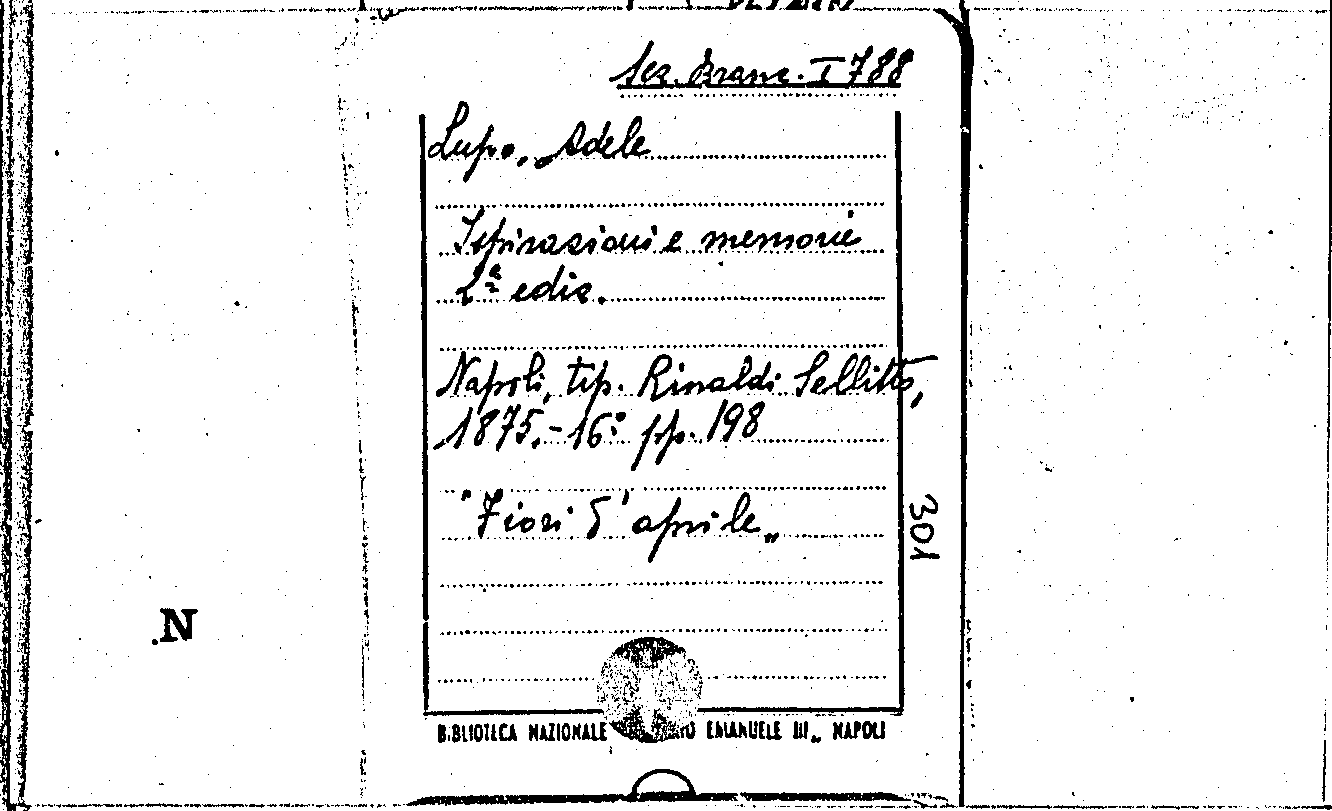 Sez. Branc. I 788
Lupo, Adele
Ispirazioni e memorie
2ª ediz.
Napoli, tip. Rinaldi Sellitto,
1875.-16° pp. 198
"Fiori d'aprile„
301
N
BIBLIOTECA NAZIONALE EMANUELE III„ NAPOLI